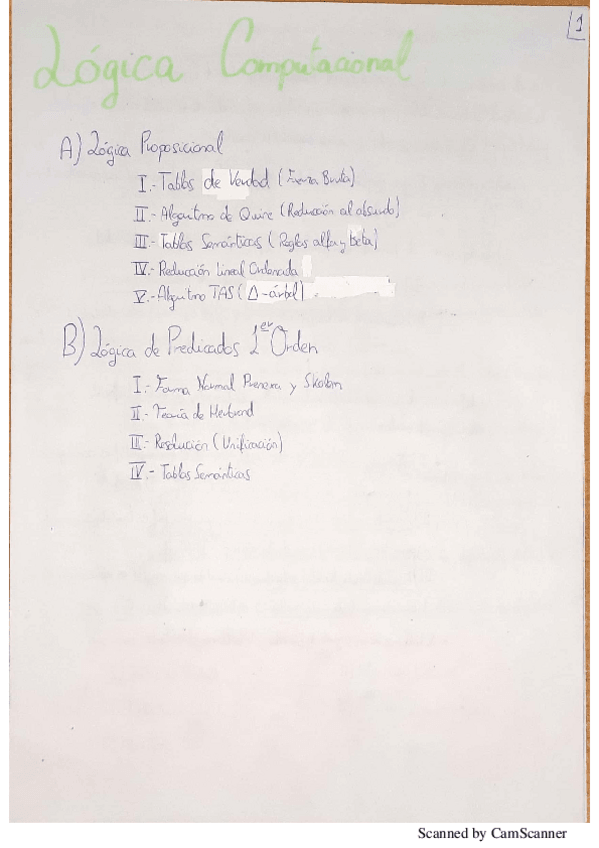 1
Lógica Computacional
A) Lógica Proposicional
I.- Tablas de Verdad (Fuerza Bruta)
II.- Algoritmo de Quine (Reducción al absurdo)
III.- Tablas Semánticas (Reglas alfa y beta)
IV.- Reducción Lineal Ordenada
V.- Algoritmo TAS (Δ-árbol)
B) Lógica de Predicados 1er Orden
I.- Forma Normal Prenexa y Skolem
II.- Teoría de Herbrand
III.- Resolución (Unificación)
IV.- Tablas Semánticas
Scanned by CamScanner